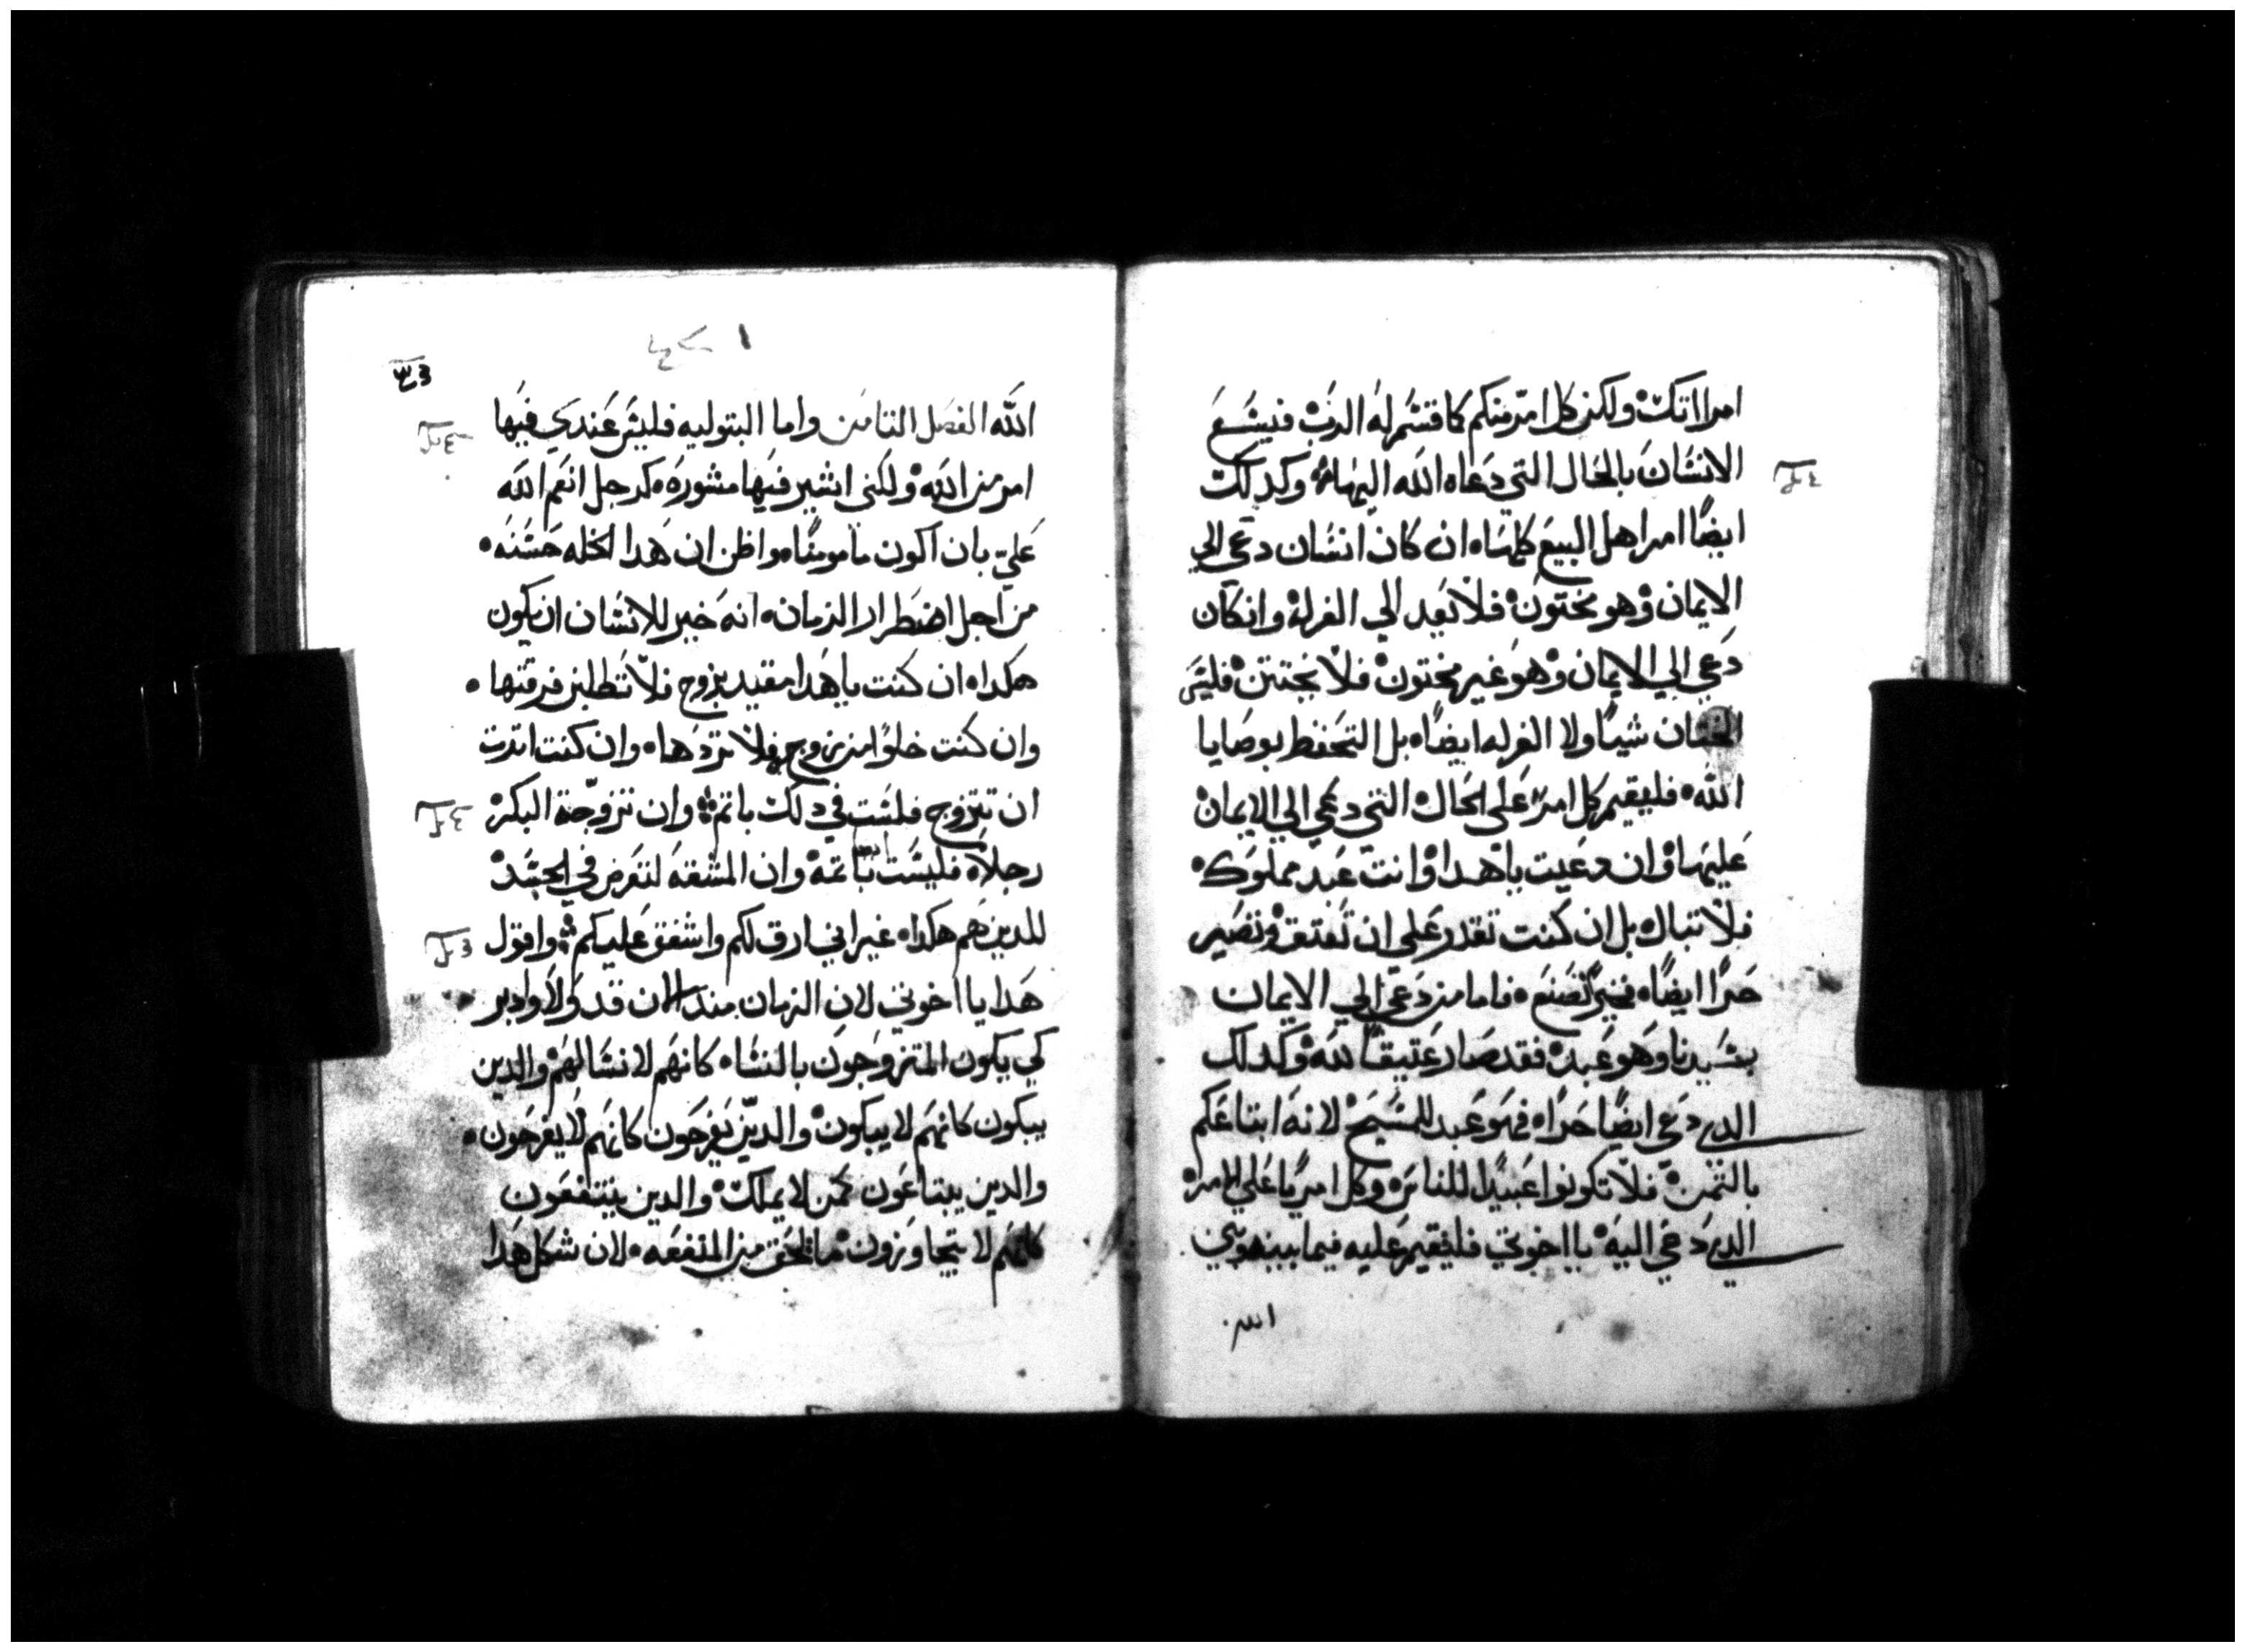 امرااتك ولكن كل امرٍ منكم كما قسّم له الرب فيسَع
الانسَان بالحَال التي دَعَاه الله اليهَا وكدلك
ايضًا امر اهل البيع كلهَا ان كان انسَان دعَي الي
الايمان وهو مختون فلا يَعد الي الغرله وان كان
دَعي الي الايمان وهوَ غير مختون فلا يختتن فليسَ
الختان شيًا ولا الغرله ايضًا بل التحَفظ بوصَايا
الله فليقيم كل امرٍ عَلي الحَال التي دعَي الي الايمان
عَليهَا وان دعَيت ياهدا وانت عَبد مملوَك
فلا تباك بل ان كنت تقدر عَلي ان تَعتق وتصَير
حَرًا ايضًا فخيرًا تصَنع فاما من دَعَي الي الايمان
بسَيدنا وهَو عَبد فقد صَار عَتيقًا لله وكدلك
الدي دَعَي ايضًا حَرًا فهَو عَبد للمسَيح لانهَ ابتاعَكم
بالتمن فلا تكونوا عَبيدًا للناس وكل امريًا عَلي الامر
الدي دَعَي اليهَ يا اخوتي فليقيم عَليه فيما بينه وبين
الله
الله الفصَل التامَن واما البتوليه فليسَ عَندَي فيهَا
امر من الله ولكني اشير فيهَا مشورَه كرجل انعَم الله
عَليّ بان اكون مامومنًا واظن ان هَدا الخله حسَنه
من اجل اضطرار الزمان انهَ خير للانسَان ان يكون
هكدا ان كنت ياهَدا مقيد بزوج فلا تَطلبن فرقتها
وان كنت خلوًا من زوج فلا تردهَا وان كنت اتدرت
ان تتزوج فلسَت في دلك باتم وان تزوجّة البكر
رجلًا فليسَت بَاتمه وان المشقه لتعَرض في الجسَد
للدين هَم هكدا غير اني ارق لكم واشفق عَليكم واقول
هَدا يا اخوتي لان الزمان مند الان قد وَلا وادبر
كي يكون المتزوجَون بالنسَا كانهَم لا نسَا لهَم والدين
يبكون كانهَم لا يبكون والديّن يَفرحَون كانهَم لا يفرحَون
والدين يبتاعَون كمَن لا يملك والدين ينتفعَون
كانهَم لا يتجاوَزون ما لحَق من المنفعَه لان شكل هَدا